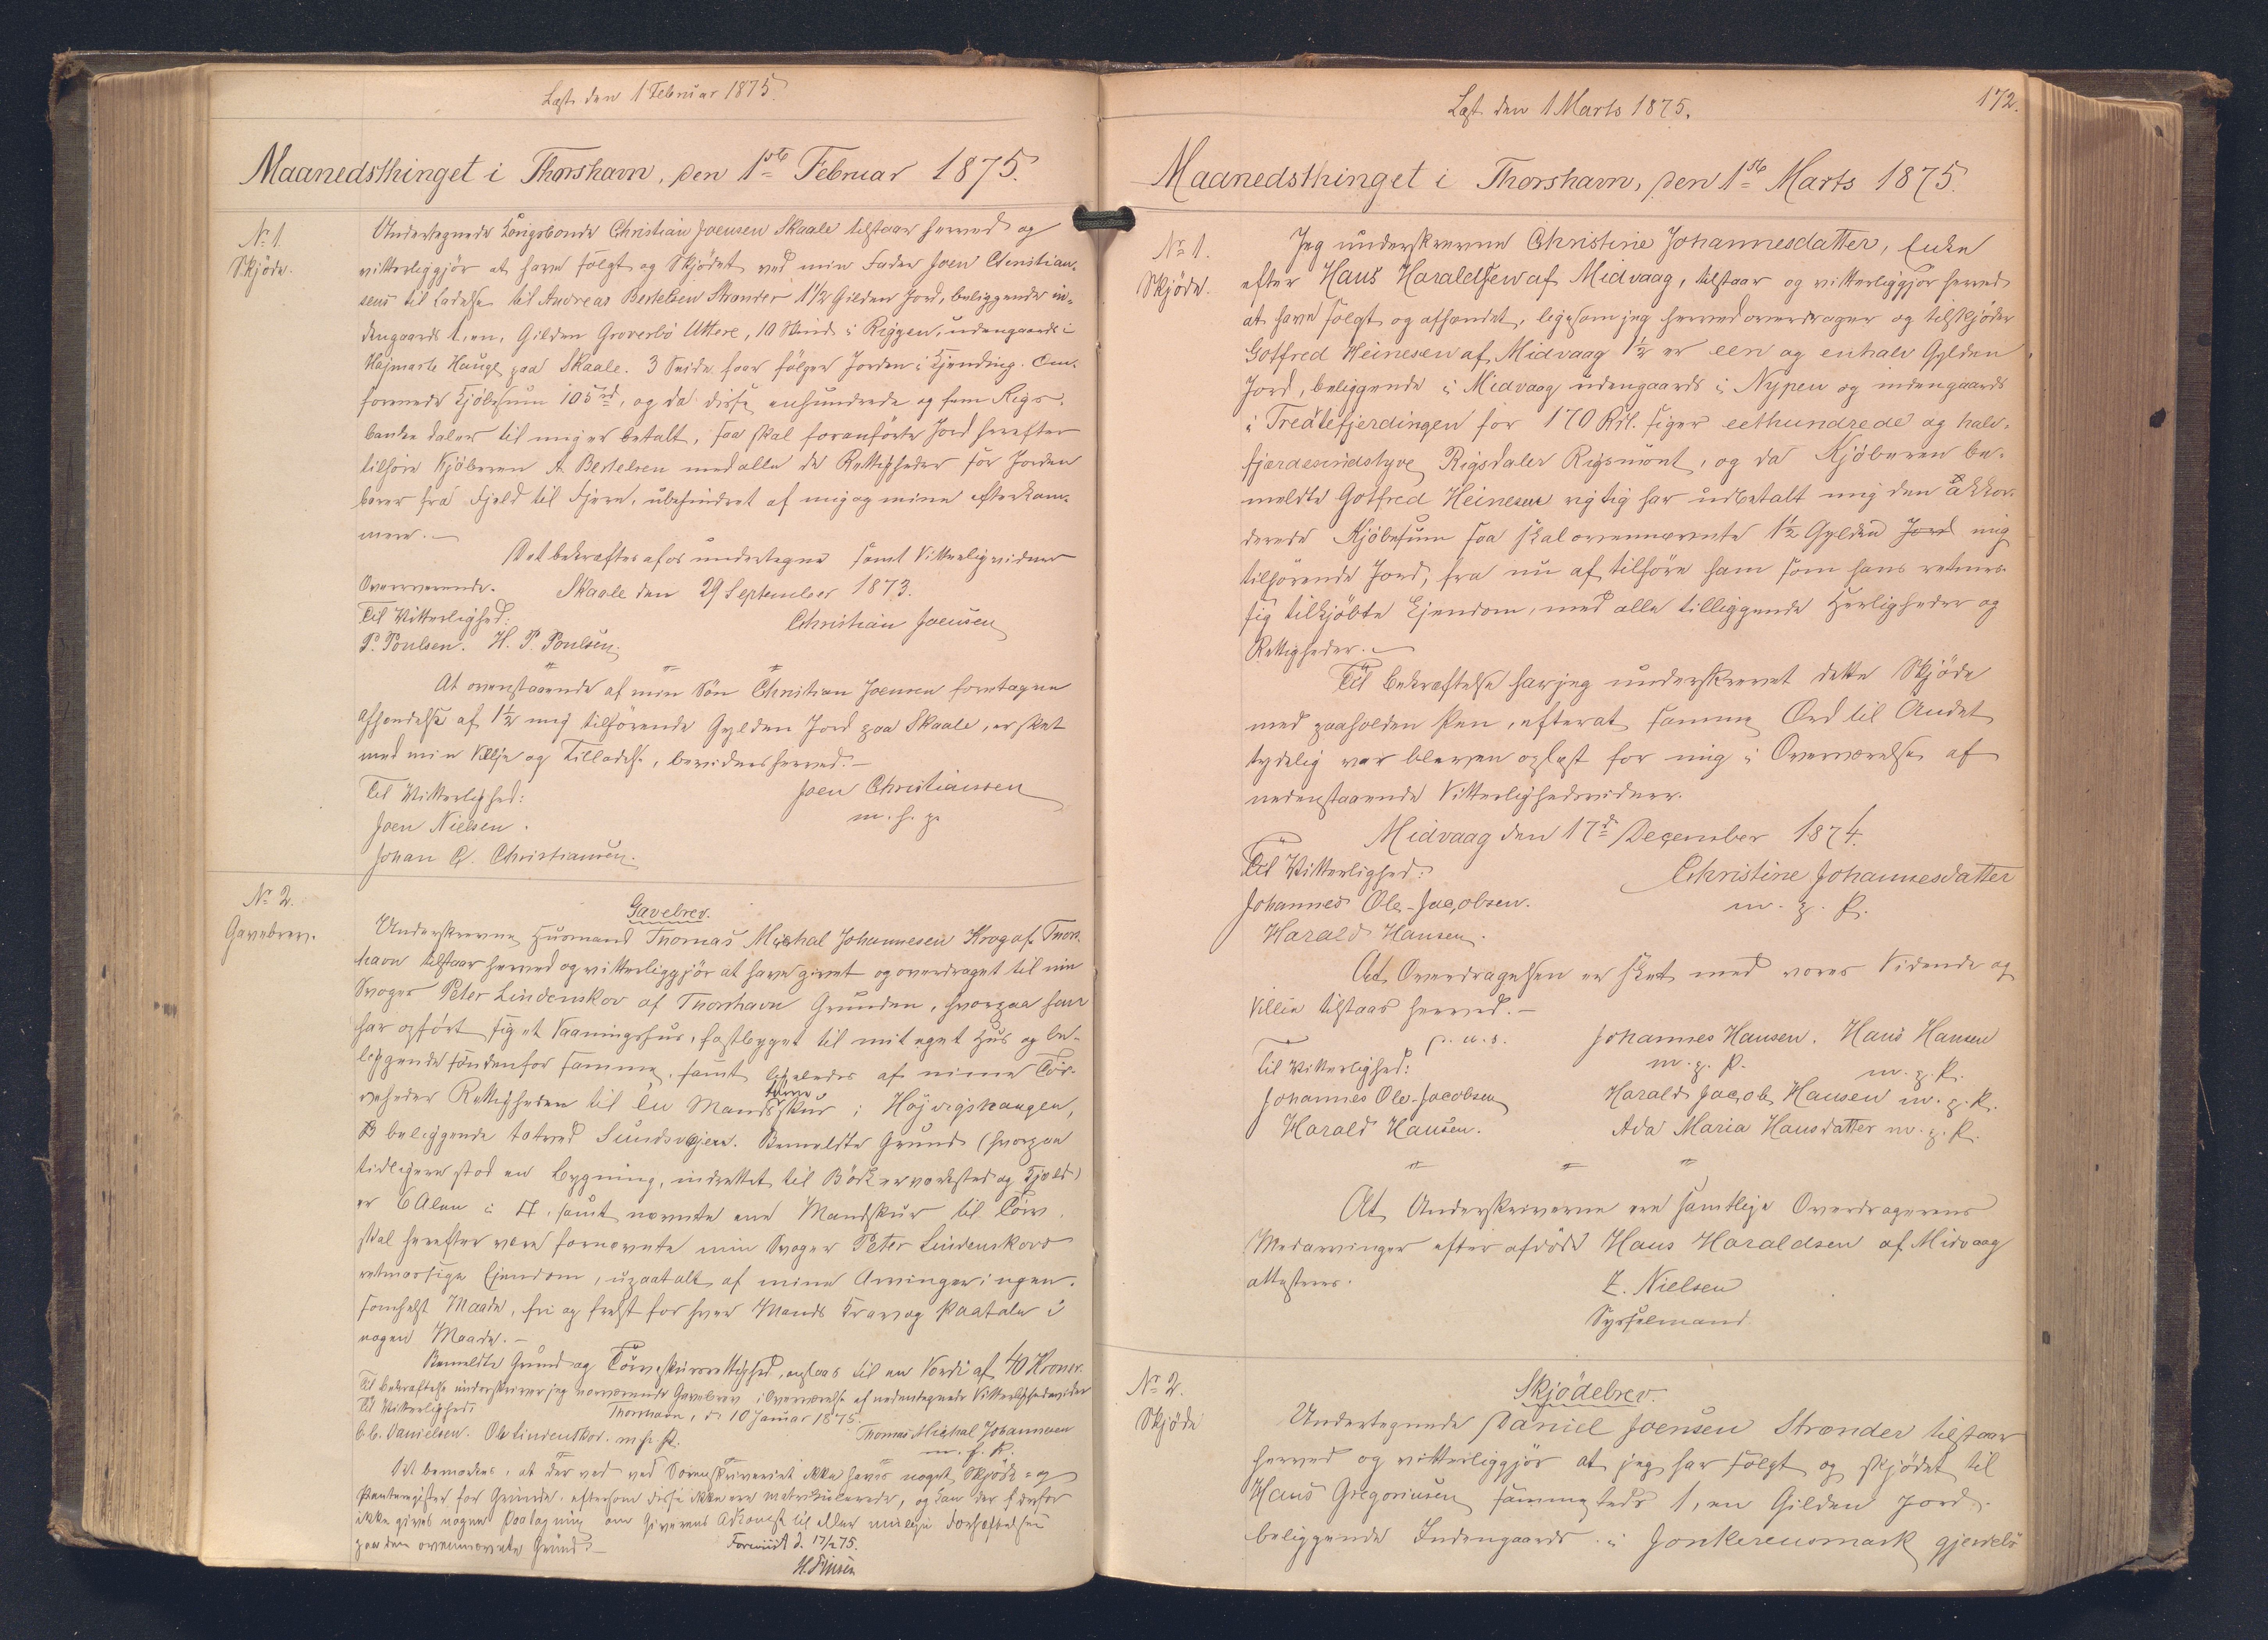 Læst den 1 Februar 1875.
Maanedsthinget i Thorshavn, den 1ste Februar 1875.
No 1.
Skjøde.
Undertegnede Kongsbonde Christian Joensen Skaale tilstaar herved og
vitterliggjør at have solgt og Skjødet ved min Fader Joen Christian-
sens til Ladelse til Andreas Bertelsen Strander 1 1/2 Gilden Jord, beliggende in-
dengaards 1, en, Gilden Groverbö Uttere, 10 Skind i Ryggen, udengaards i
Højmarts Hauge paa Skaale. 3 Snide faar følger Jorden i Kjending. Om-
forenede Kjøbesum 105 rd, og da disse enhundrede og fem Rigs-
banke daler til mig er betalt, saa skal foranførte Jord herefter
tilhøre Kjøberen A. Bertelsen med alle de Rettigheder som Jorden
bærer fra Fjeld til Fjære, ubehindret af mig og mine efterkom-
mere. —
Det bekræftes af os undertegne samt Vitterligvidner
Overværende. Skaale den 29 September 1873.
Til Vitterlighed: Christian Joensen
P. Poulsen. H. P. Poulsen.
At ovenstaaende af min Søn Christian Joensen foretagne
Afhændelse af 1 1/2 mig tilhørende Gylden Jord paa Skaale, er sket
med min Villje og Tilladelse, bevidnes herved. —
Til Vitterlighed: Joen Christiansen
Joen Nielsen. m. f. p.
Johan C. Christiansen.
No 2.
Gavebrev.
Gavebrev.
Underskrevne Husmand Thomas Michal Johannesen Krog af Thors-
havn tilstaar herved og vitterliggjør at have givet og overdraget til min
Svoger Peter Lindenskov af Thorshavn Grunden, hvorpaa han
har opført sig et Vaaningshus, fastbygget til mit eget Hus og be-
liggende søndenfor samme, samt ligeledes af mine Tør-
veheder Rettigheden til en Mands skur i Højvigshaugen,
beliggende tætved Sundsvejen. Bemeldte Grund (hvorpaa
tidligere stod en Bygning, indrettet til Bødkerværksted og Hjeld)
er 6 Alen i □, samt nævnte ene Mandsskur til Tørv,
skal herefter være fornævnte min Svoger Peter Lindenskovs
retmæssige Ejendom, upaatalt af mine Arvinger i ingen-
somhelst Maade, fri og frelst for hver Mands Krav og Paatale i
nogen Maade. —
Bemeldte Grund og Törveskursrettighed, anslaas til en Værdi af 40 Kroner.
Til bekræftelse underskriver jeg nærværende Gavebrev i Overværelse af nedentegnede Vitterlighedsvidner
Til Vitterlighed: Thorshavn, d. 10 Januar 1875.
C. C. Danielsen. Ole Lindenskov. m. f. P. Thomas Michal Johannesen
m. f. P.
Det bemærkes, at der ved ved Sorenskriveriet ikke haves noget Skjøde- og
Panteregister for Grunde, eftersom disse ikke ere matrikulerede, og kan der f derfor
ikke gives nogen Paategning om Giverens Adkomst til eller mulige Forhæftelser
paa den ovennævnte Grund. — Forevist d. 17/2 75.
H. Finsen
Læst den 1 Marts 1875.
172.
Maanedsthinget i Thorshavn, den 1ste Marts 1875.
No 1.
Skjøde.
Jeg underskrevne Christine Johannesdatter, Enke
efter Hans Haraldsen af Midvaag, tilstaar og vitterliggjør herved
at have solgt og afhændet, ligesom jeg herved overdrager og tilskjøder
Gotfred Heinesen af Midvaag 1 1/2 er een og enhalv Gylden
Jord, beliggende i Midvaag udengaards i Nypen og indengaards
i Tredtefjerdingen for 170 Rdl. siger eethundrede og halv-
fjerdesindstyve Rigsdaler Rigsmönt, og da Kjøberen be-
meldte Gotfred Heinesen rigtig har udbetalt mig den akkor-
derede Kjøbesum saa skal ovennævnte 1 1/2 Gylden Jord mig
tilhørende Jord, fra nu af tilhøre ham som hans retmæs-
sig tilkjøbte Ejendom, med alle tilliggende Herligheder og
Rettigheder. —
Til Bekræftelse har jeg underskrevet dette Skjøde
med paaholden Pen, efterat samme Ord til Andet
tydelig var bleven oplæst for mig i Overværelse af
nedenstaaende Vitterlighedsvidner.
Midvaag den 17de December 1874.
Til Vitterlighed: Christine Johannesdatter
Johannes Ole-Jacobsen. m. p. P.
Harald Hansen.
At Overdragelsen er sket med vores Vidende og
Villie tilstaas herved. —
p. u. s. Johannes Hansen. Hans Hansen
Til Vitterlighed: m. p. P. m. p. P.
Johannes Ole-Jacobsen Harald Jacob Hansen m. p. P.
Harald Hansen. Ada Maria Hansdatter m. p. P.
At Underskriverne ere samtlige Overdragerens
Medarvinger efter afdøde Hans Haraldsen af Midvaag
attesteres. Z. Nielsen
Sysselmand.
No 2.
Skjøde
Skjødebrev.
Undertegnede Daniel Joensen Strander tilstaar
herved og vitterliggjør at jeg har solgt og skjødet til
Hans Gregoriusen sammesteds 1, en Gilden Jord
beliggende Indengaards i Jonkerensmark gjerdels